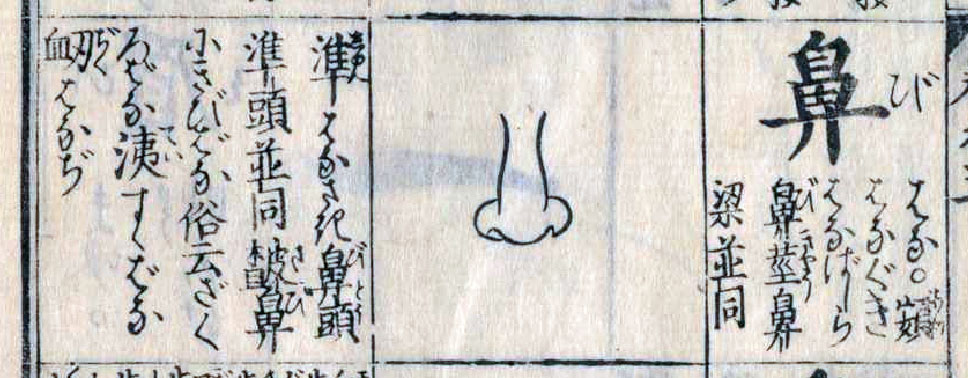 び
鼻
はな。
はなぐき
はなばしら
鼻茎鼻
梁並同
準 はなさき 鼻頭
準頭並同 皻鼻
にきびばな俗云ざく
ろばな 洟 すゝばな
衂 はなぢ